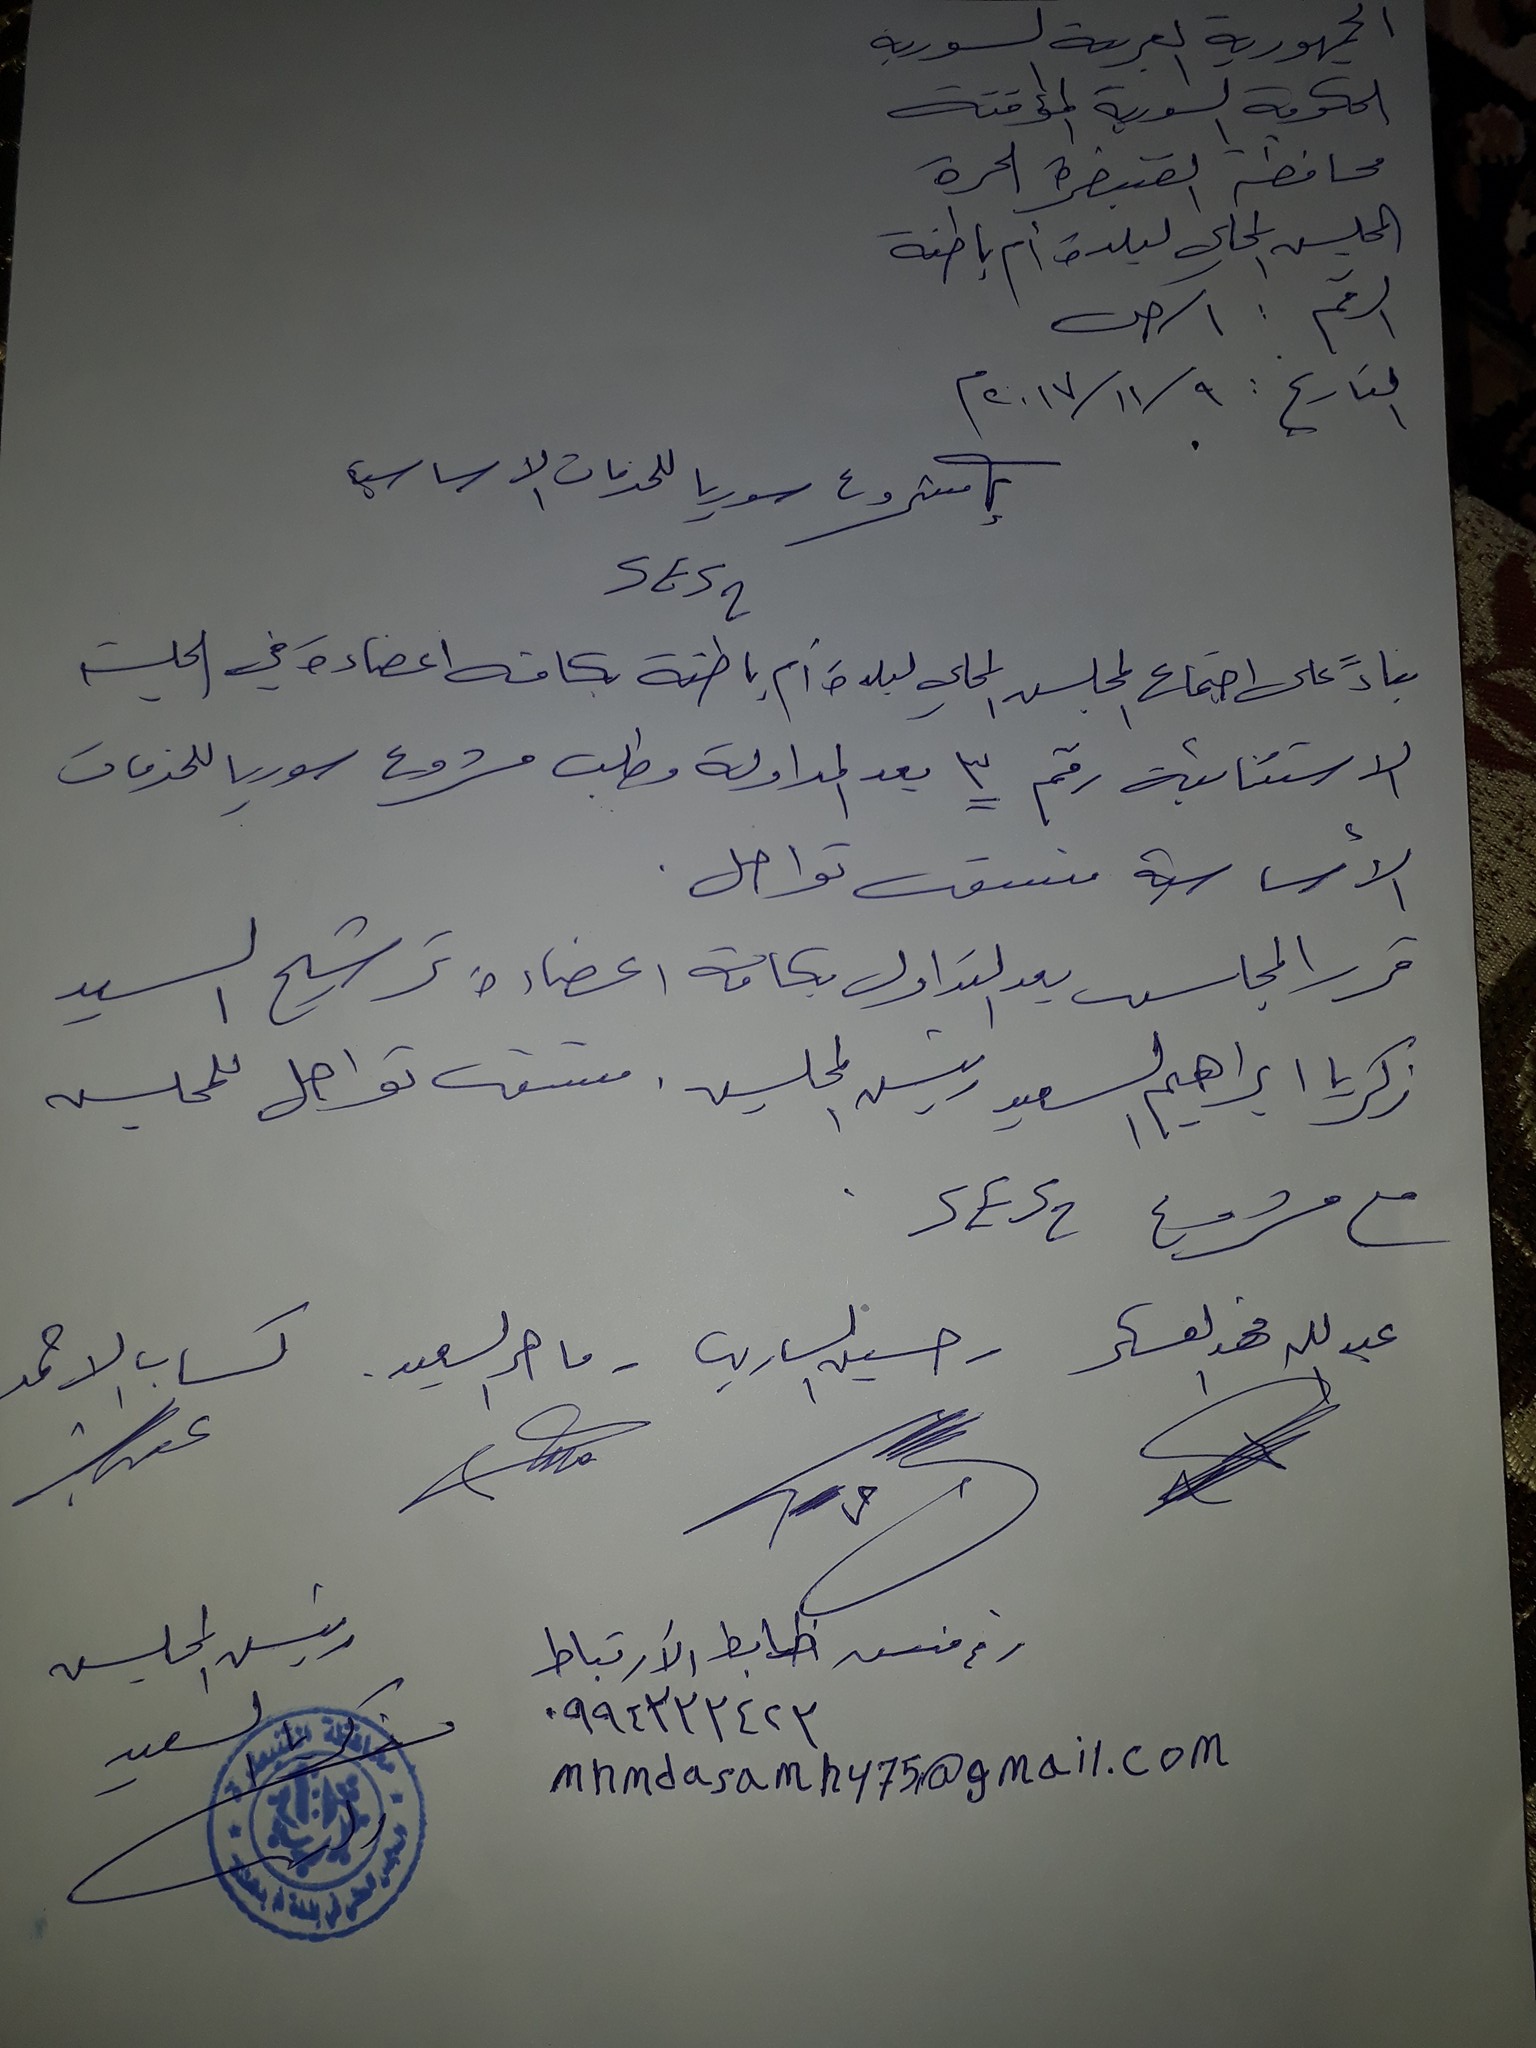 الجمهورية العربية السورية
الحكومة السورية المؤقتة
محافظة القنيطرة الحرة
المجلس المحلي لبلدة أم باطنة
الرقم : ١/ص
التاريخ : ٩/١١/٢٠١٧م
إلى مشروع سوريا للخدمات الاساسية
SES2
بناءً على اجتماع المجلس المحلي لبلدة أم باطنة بكافة اعضاءه في الجلسة
الاستثنائية رقم ٣ بعد المداولة وطلب مشروع سوريا للخدمات
الأساسية منسق تواصل .
قرر المجلس بعد التداول بكافة اعضاءه ترشيح السيد
زكريا ابراهيم السعيد رئيس المجلس . منسق تواصل للمجلس
مع مشروع SES2 .
عبدالله فهد العسكر - حسين الساري - ماهر السعيد . كساب الاحمد
ضابط الأرتباط
رئيس المجلس
زكريا السعيد
mhmdasamh475@gmail.com
محافظة القنيطرة